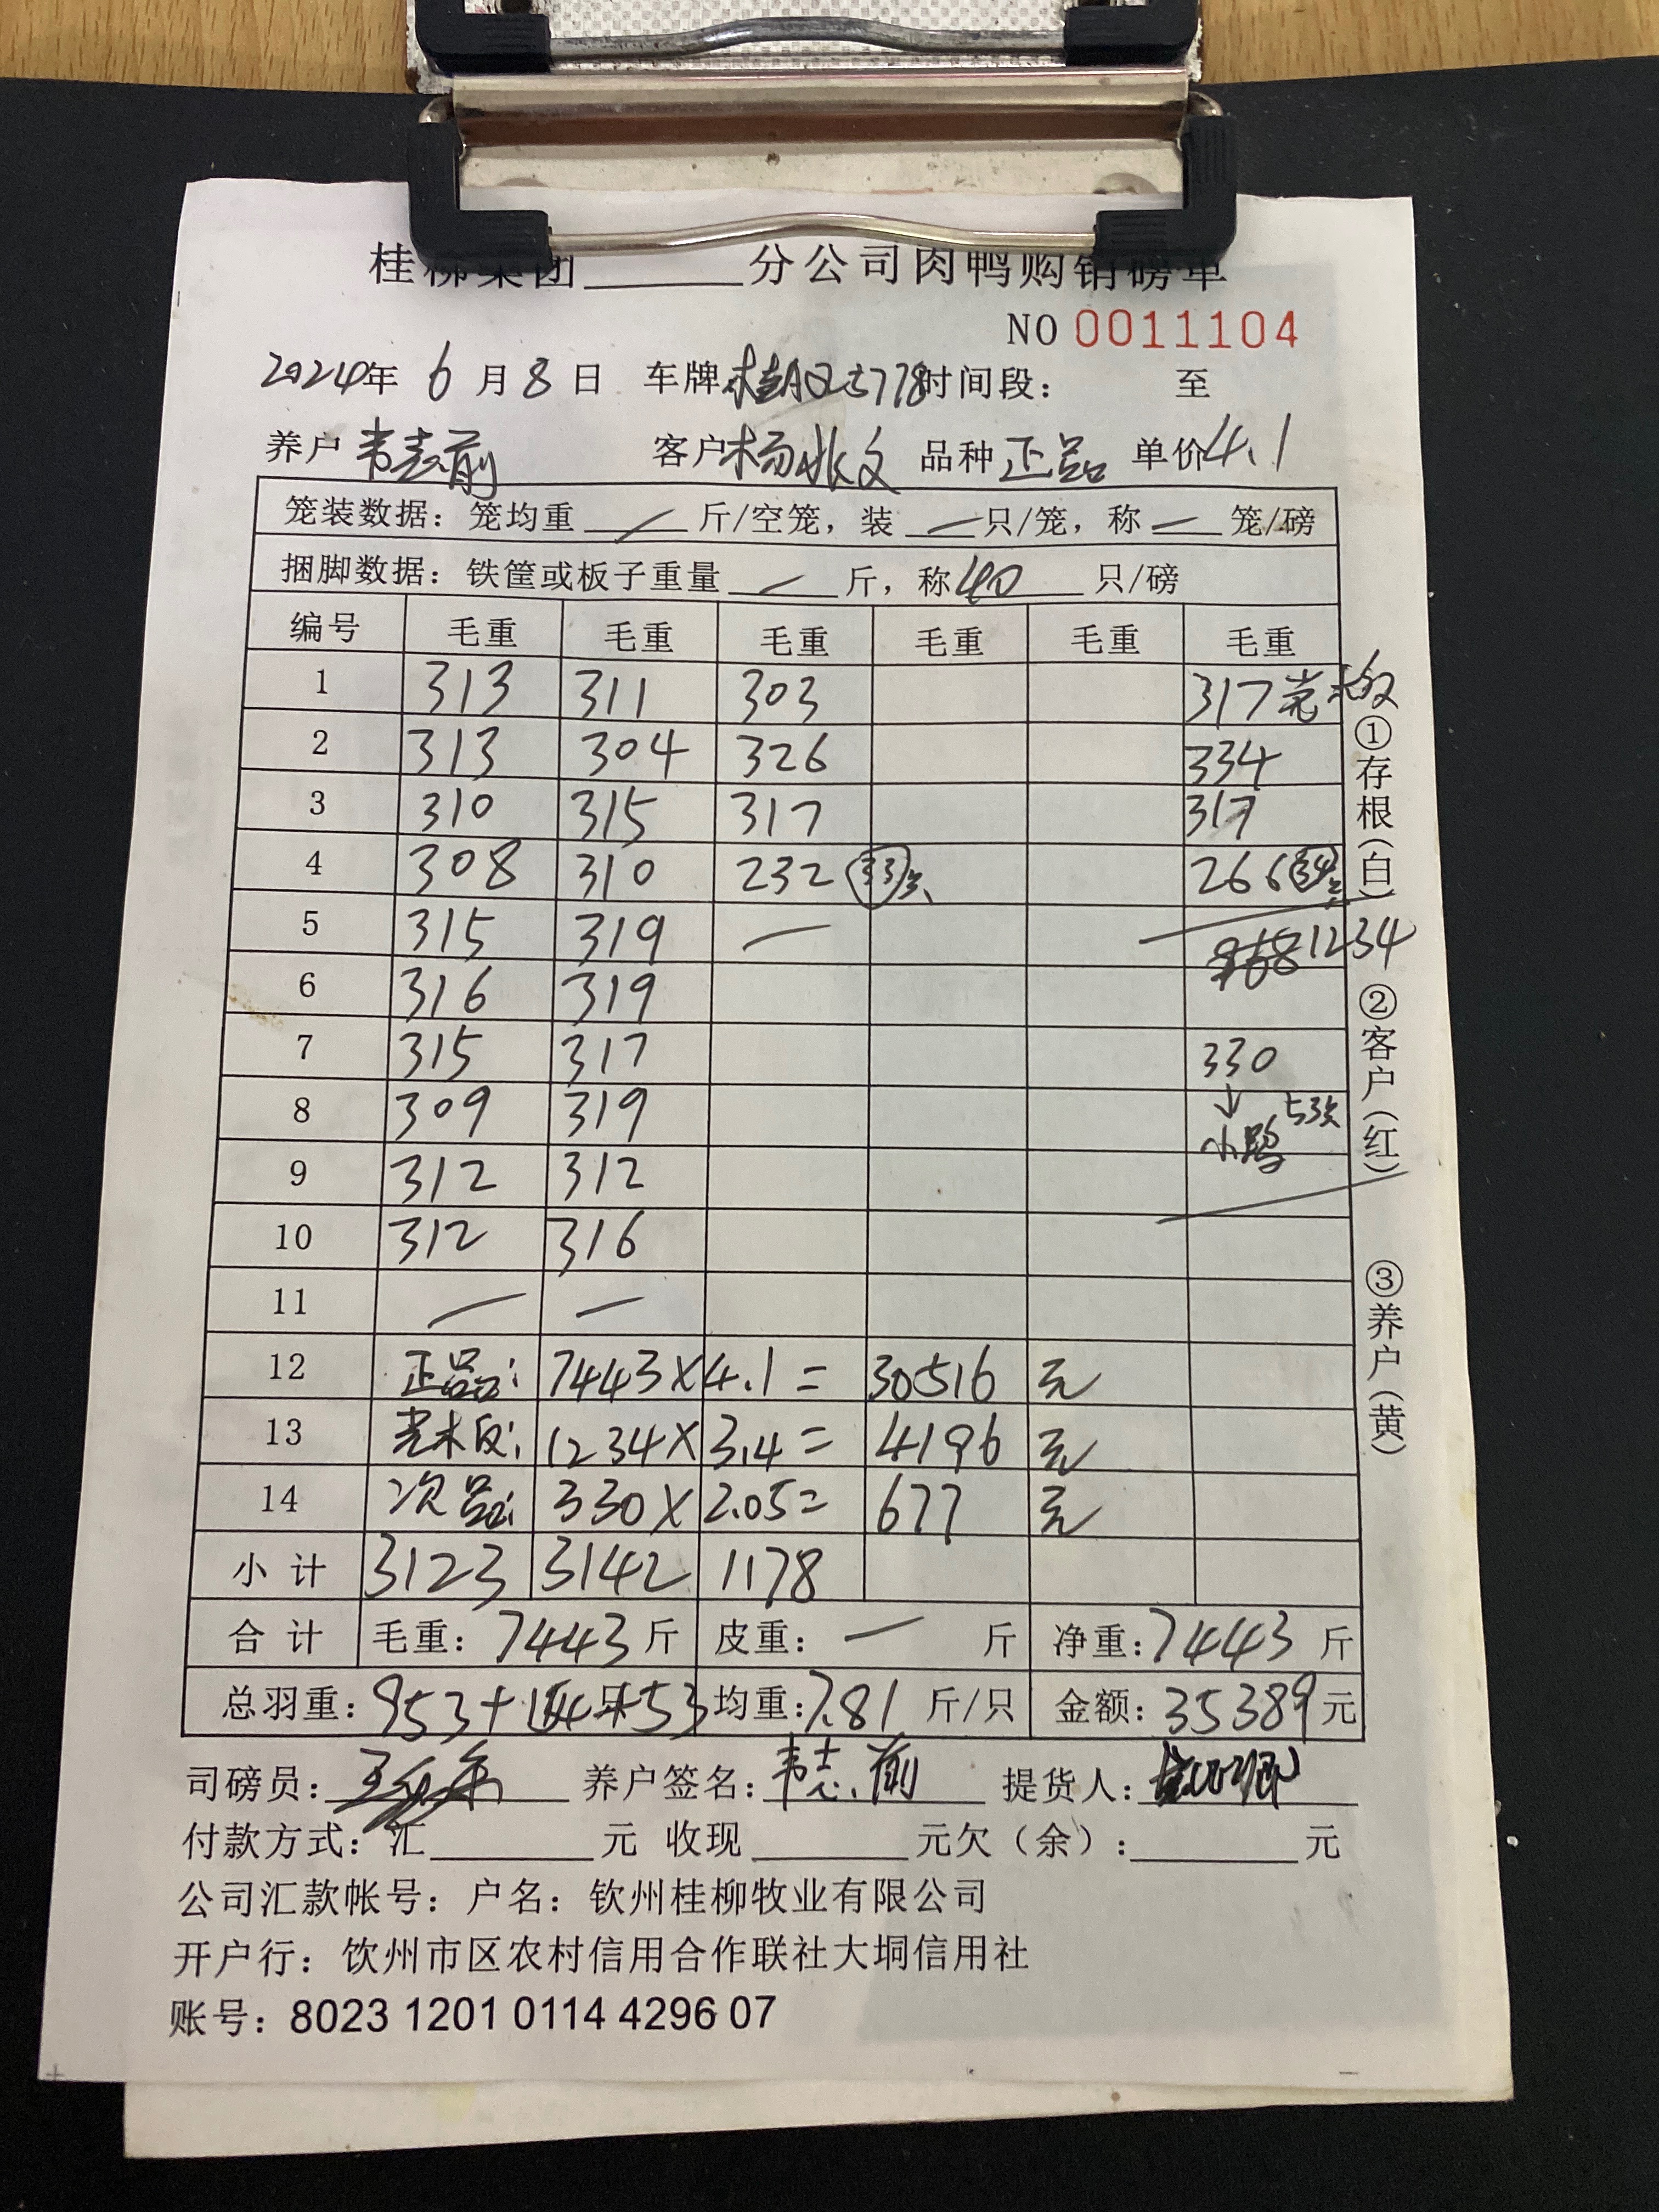 桂柳集团______分公司肉鸭购销磅单
NO 0011104
2024年 6月 8日 车牌 时间段： 至
养户 韦志前 客户 杨 文 品种 正品 单价 4.1
笼装数据：笼均重 — 斤/空笼，装 — 只/笼，称 — 笼/磅
捆脚数据：铁筐或板子重量 — 斤，称 40 只/磅
编号 毛重 毛重 毛重 毛重 毛重 毛重
1 313 311 303 317
2 313 304 326 334
3 310 315 317 317
4 308 310 232 33只 266 34只
5 315 319 — 1234
6 316 319
7 315 317 330
8 309 319 ↓ 53只
小鸭
9 312 312
10 312 316
11 — —
12 正品: 7443×4.1= 30516 元
13 1234×3.4= 4196 元
14 次品: 330×2.05= 677 元
小计 3123 3142 1178
合计 毛重：7443斤 皮重：— 斤 净重：7443 斤
总羽重：953+154只+53 均重：7.81 斤/只 金额：35389元
司磅员： 养户签名：韦志前 提货人：
付款方式：汇______元 收现______元欠（余）：______元
公司汇款帐号：户名：钦州桂柳牧业有限公司
开户行：饮州市区农村信用合作联社大垌信用社
账号：8023 1201 0114 4296 07
①存根（白）
②客户（红）
③养户（黄）